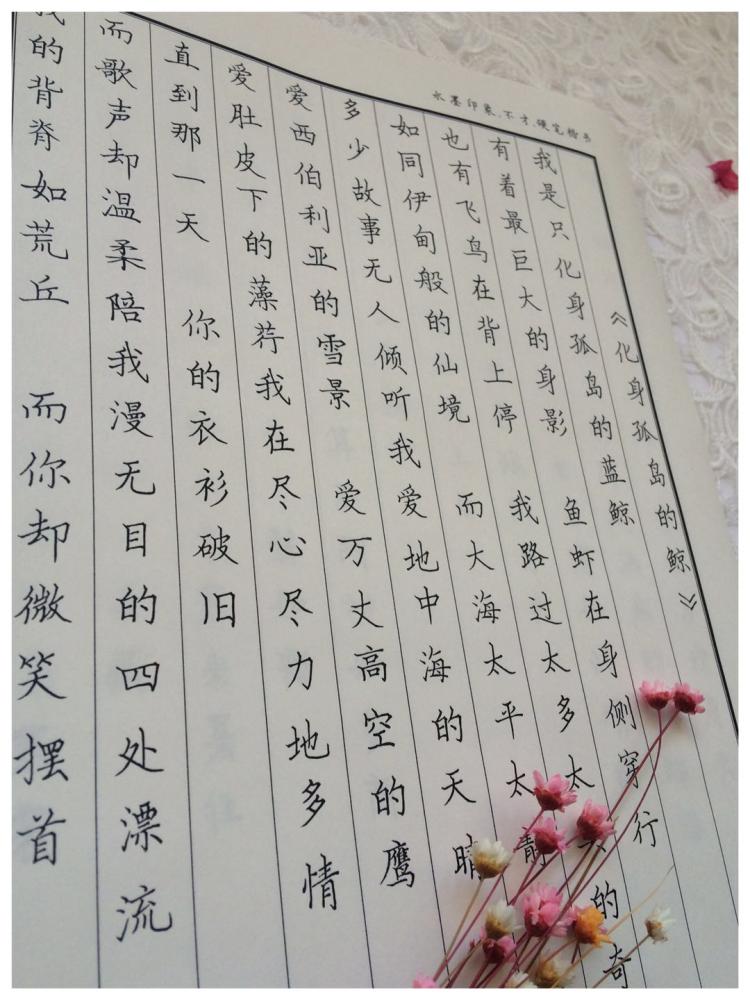 水墨印象.不才.硬笔楷书
《化身孤岛的鲸》
我是只化身孤岛的蓝鲸
有着最巨大的身影 鱼虾在身侧穿行
也有飞鸟在背上停 我路过太多太的奇
如同伊甸般的仙境 而大海太平太静
多少故事无人倾听我爱地中海的天晴
爱西伯利亚的雪景 爱万丈高空的鹰
爱肚皮下的藻荇我在尽心尽力地多情
直到那一天 你的衣衫破旧
而歌声却温柔陪我漫无目的四处漂流
我的背脊如荒丘 而你却微笑摆首